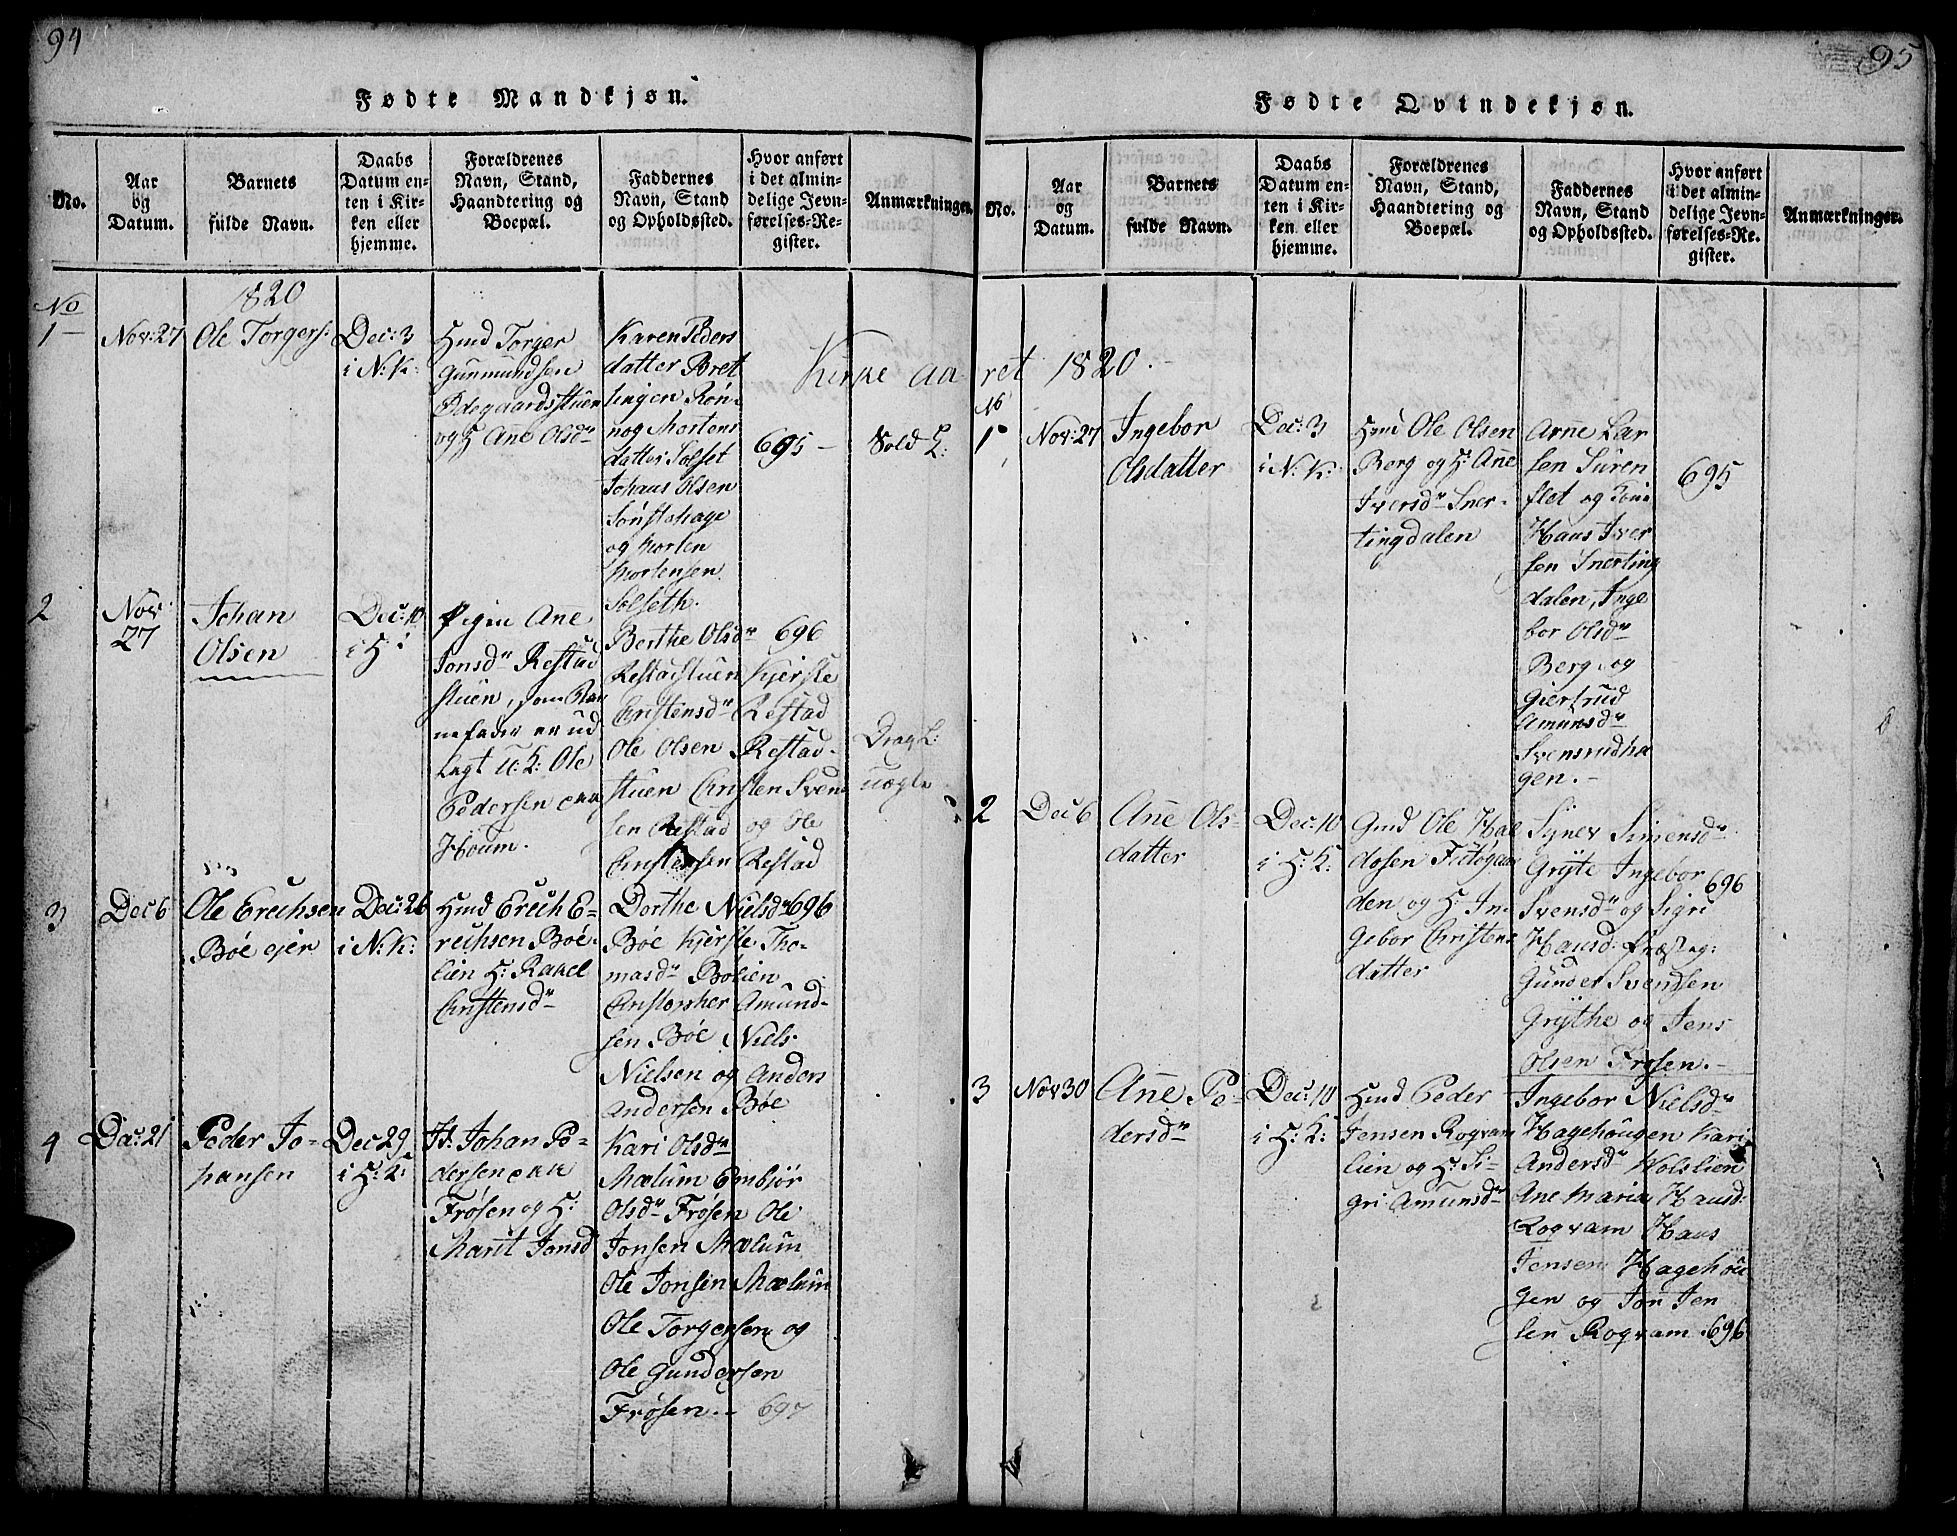 94
Fødte Mandkjøn.
No.
Aar
og
Datum.
Barnets
fulde Navn.
Daabs
Datum en-
ten i Kir-
ken eller
hjemme.
Forældrenes
Navn, Stand,
Haandtering og
Boepæl.
Faddernes
Navn, Stand
og Opholdssted.
Hvor anført
i det almin-
delige Jevn-
førelses-Re-
gister.
Anmærkninger.
1820
No
1 —
Nov: 27
Ole Torgers:
Dec: 3
i N: K:
Hmd Torger
Gunmundsen
Ødegaardsstuen
og H Ane Olsdr
Karen Peders
datter Bret
lingen Røn
nog Mortens
datter Solset
Johans Olsen
Sønstehage
og Morten
Mortensen
Solseth.
695 —
Sold L:
2
Nov:
27
Johan
Olsen
Dec: 10
i H:
Pigen Ane
Jonsdr Restad
stuen, som Bar
nefader er ud
lagt U: K: Ole
Pedersen
Houm.
Berthe Olsdr 696
Restadstuen Kjerste
Christensdr Restad
Ole Olsen Restad-
stuen Christen Sven
sen Restad og Ole
Christensen Restad
Drag L:
uægte
3
Dec 6
Ole Erichsen
Bøe ejer
Dec: 26
i N: K:
Hmd Erich E-
rechsen Bøe-
lien H: Rakel
Christensdr
Dorthe Nielsdr 696
Bøe Kjerste Tho-
masdr Bølien
Christopher Amund-
sen Bøe Niels
Nielsen og Anders
Andersen Bøe
4
Dec: 21
Peder Jo-
hansen
Dec 29
i H: K:
Johan Pe-
dersen
Frøsen og H:
Marit Jonsd
Kari Olsdr
Mælum Embjør
Olsdr Frøsen Ole
Jonsen Mælum
Ole Jonsen Mælum
Ole Torgersen og
Ole Gundersen
Frøsen. - 697
95
Fødte Qvindekjøn.
No.
Aar
og
Datum.
Barnets
fulde Navn.
Daabs
Datum en-
ten i Kir-
ken eller
hjemme.
Forældrenes
Navn, Stand,
Haandtering og
Boepæl.
Faddernes
Navn, Stand
og Opholdssted.
Hvor anført
i det almin-
delige Jevn-
førelses-Re-
gister.
Anmærkninger.
Kirke aaret 1820. -
No
1
Nov: 27
Ingebor
Olsdatter
Dec: 3
i N: K:
Hmd Ole Olsen
Berg og H: Ane
Iversdr Sner-
tingdalen
Arne Lar
sen Suren
flet og Kone
Hans Iver
sen Snerting
dalen, Inge
bor Olsdr
Berg, og
Giertrud
Amunsdr
Svensrudha
gen. -
695
2
Dec 6
Ane Ols-
datter
Dec: 10
i H: K:
Gmd Ole Hal
dosen Fodtøgaar
den og H: In-
gebor Christens
datter
Synev Simensdr
Gryte Ingebor 696
Svensdr og Sigri
Hansd: Præsteg:
Gunder Svendsen
Grythe og Jens
Olsen Frøsen. -
3
Nov 30
Ane Pe-
dersdr
Dec: 10
i H: K:
Hmd Peder
Jensen Rogvam
lien og H: Si-
gri Amunsdr
Ingebor Nielsdr
Hagehougen Kari
Andersdr Kolslien
Ane Maria Hansd:
Rogvam Hans
Jensen Hagehou
gen og Jon Jen
sen Rogvam. 696